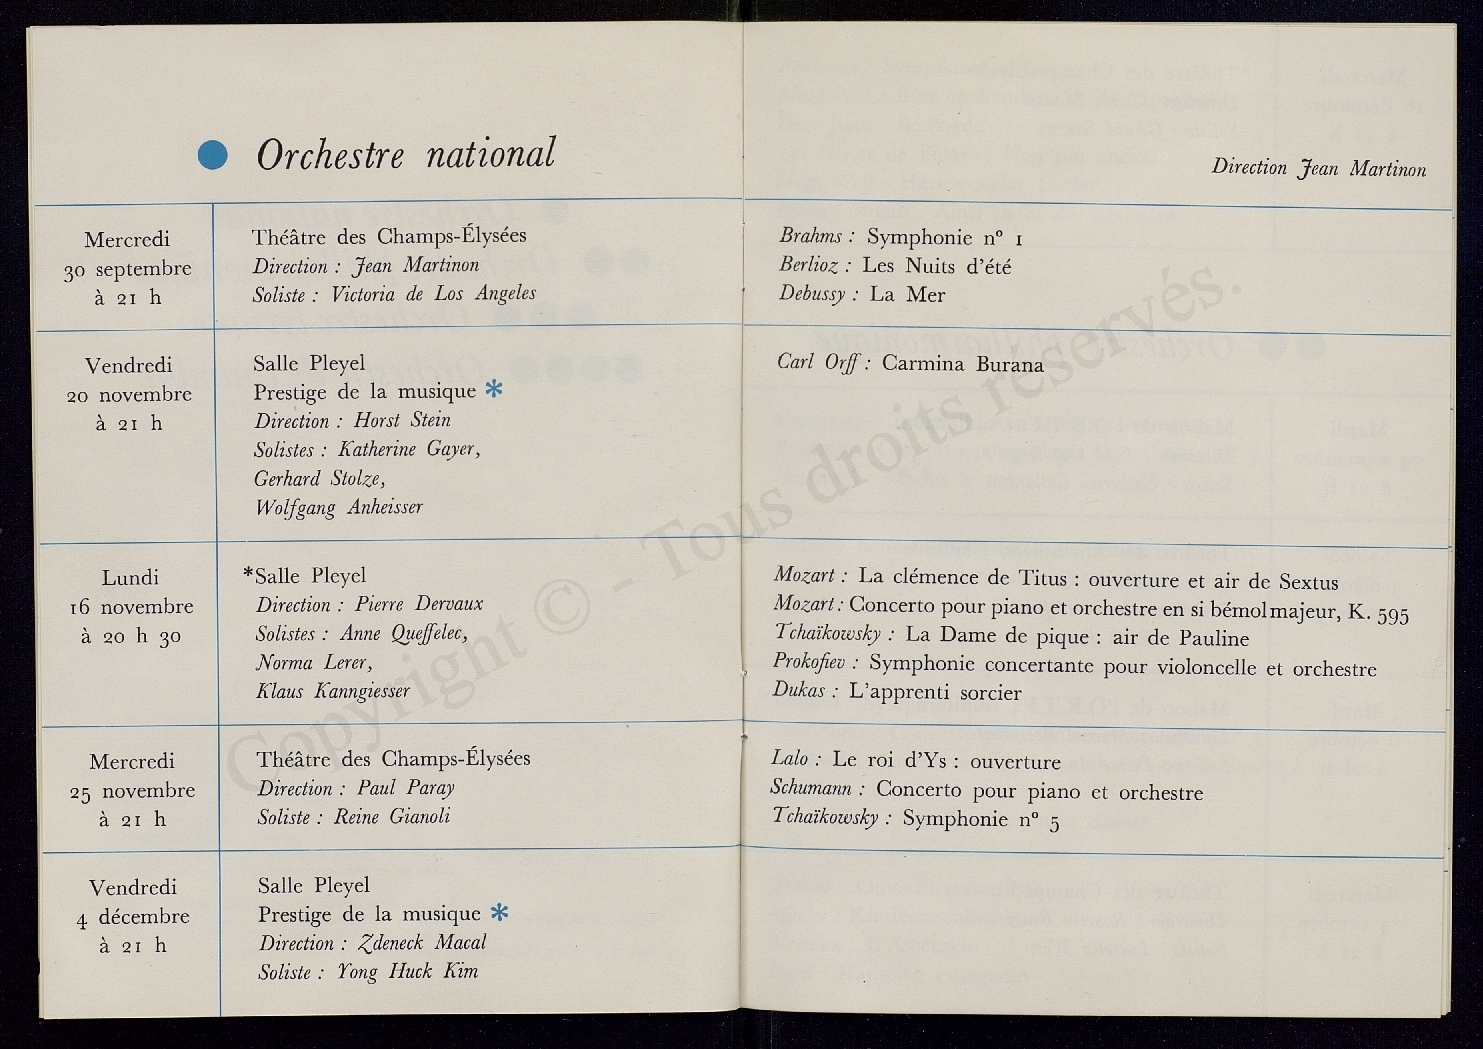 Orchestre national
Direction Jean Martinon
Mercredi
30 septembre
à 21 h
Théâtre des Champs-Élysées
Direction : Jean Martinon
Soliste : Victoria de Los Angeles
Brahms : Symphonie nº 1
Berlioz : Les Nuits d'été
Debussy : La Mer
Vendredi
20 novembre
à 21 h
Salle Pleyel
Prestige de la musique *
Direction : Horst Stein
Solistes : Katherine Gayer,
Gerhard Stolze,
Wolfgang Anheisser
Carl Orff : Carmina Burana
Lundi
16 novembre
à 20 h 30
*Salle Pleyel
Direction : Pierre Dervaux
Solistes : Anne Queffelec,
Norma Lerer,
Klaus Kanngiesser
Mozart : La clémence de Titus : ouverture et air de Sextus
Mozart : Concerto pour piano et orchestre en si bémol majeur, K. 595
Tchaïkowsky : La Dame de pique : air de Pauline
Prokofiev : Symphonie concertante pour violoncelle et orchestre
Dukas : L'apprenti sorcier
Mercredi
25 novembre
à 21 h
Théâtre des Champs-Élysées
Direction : Paul Paray
Soliste : Reine Gianoli
Lalo : Le roi d'Ys : ouverture
Schumann : Concerto pour piano et orchestre
Tchaïkowsky : Symphonie nº 5
Vendredi
4 décembre
à 21 h
Salle Pleyel
Prestige de la musique *
Direction : Zdeneck Macal
Soliste : Yong Huck Kim
Copyright © - Tous droits réservés.